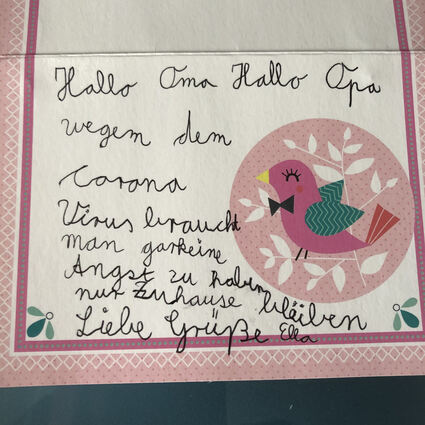 Hallo Oma Hallo Opa
wegem dem
Corona
Virus braucht
man garkeine
Angst zu haben
nur Zuhause bläiben
Liebe Grüße Ella